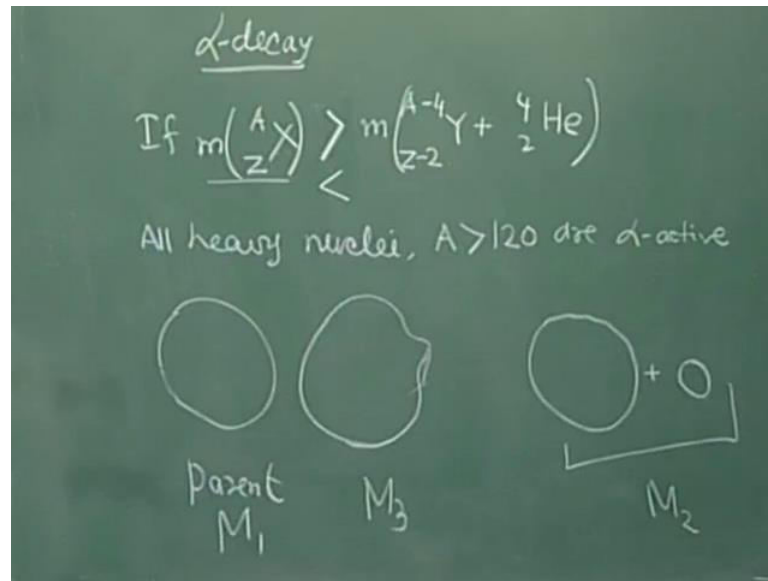 α-decay
If m(ᴬ_Z X) > m(ᴬ⁻⁴_Z-2 Y + ⁴_2 He)
<
All heavy nuclei, A>120 are α-active
+
Parent M₃ M₂
M₁